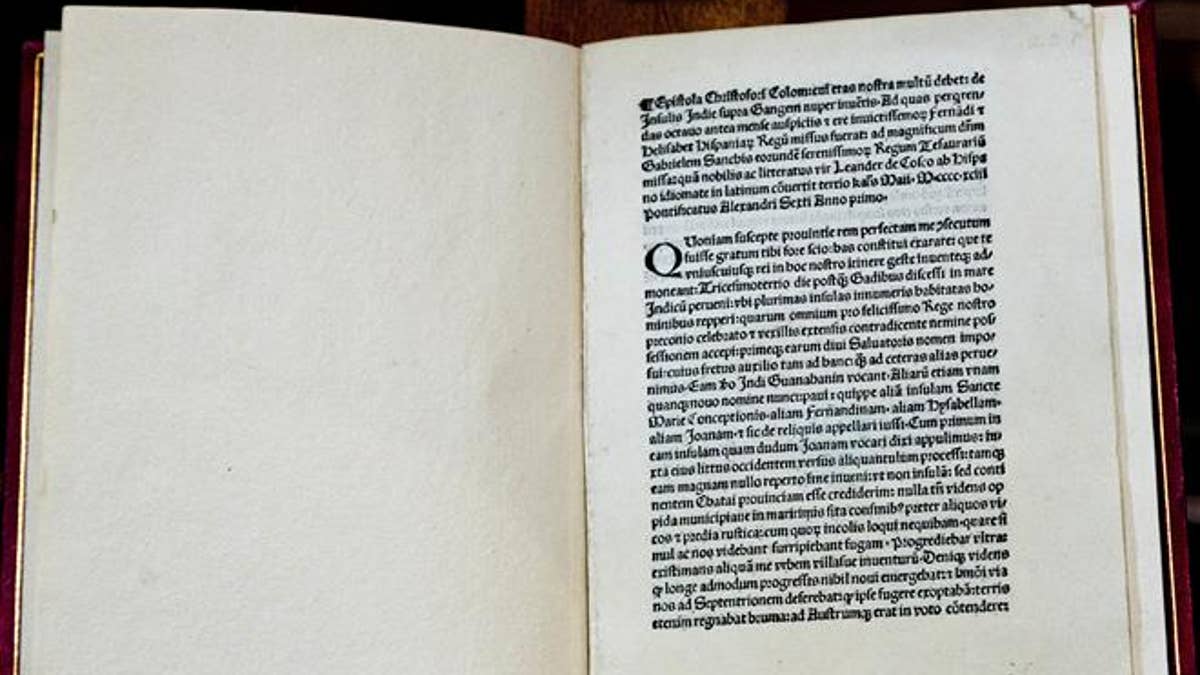 ¶Epistola Christofori Colom: cui etas nostra multũ debet: de
Insulis Indie supra Gangem nuper inuẽtis. Ad quas perqren/
das octauo antea mense auspiciis ⁊ ere inuictissimoꝝ Fernãdi ⁊
Helisabet Hispaniaꝝ Regũ missus fuerat: ad magnificum dñm
Gabrielem Sanchis eorundẽ serenissimoꝝ Regum Tesaurariũ
missa: quã nobilis ac litteratus vir Leander de Cosco ab Hispa
no idiomate in latinum cõuertit tertio kals Maii. M.cccc.xciii
Pontificatus Alexandri Sexti Anno primo.
QUoniam suscepte prouintie rem perfectam me ↄsecutum
fuisse gratum tibi fore scio: has constitui exarare: que te
vniuscuiusqꝫ rei in hoc nostro itinere geste inuenteqꝫ ad/
moneant: Tricesimotertio die postqꝫ Gadibus discessi in mare
Indicũ perueni: vbi plurimas insulas innumeris habitatas ho/
minibus repperi: quarum omnium pro felicissimo Rege nostro
preconio celebrato ⁊ vexillis extensis contradicente nemine pos/
sessionem accepi: primeqꝫ earum diui Saluatoris nomen impo/
sui: cuius fretus auxilio tam ad hanc: qꝫ ad ceteras alias perue/
nimus. Eam ꝟo Indi Guanahanin vocant. Aliarũ etiam vnam
quanqꝫ nouo nomine nuncupaui: quippe aliã insulam Sancte
Marie Conceptionis. aliam Fernandinam. aliam Hysabellam.
aliam Joanam. ⁊ sic de reliquis appellari iussi. Cum primum in
eam insulam quam dudum Joanam vocari dixi appulimus: iu
xta eius littus occidentem versus aliquantulum processi: tamqꝫ
eam magnam nullo reperto fine inueni: vt non insulã: sed conti
nentem Chatai prouinciam esse crediderim: nulla tñ videns op
pida municipiaue in maritimis sita confinibꝰ preter aliquos vi/
cos ⁊ predia rustica: cum quoꝝ incolis loqui nequibam. quare si
mul ac nos videbant surripiebant fugam. Progrediebar vltra:
existimans aliquã me vrbem villasue inuenturũ. Deniqꝫ videns
ꝙ longe admodum progressis nihil noui emergebat: ⁊ hmõi via
nos ad Septentrionem deferebat: ꝙ ipse fugere exoptabã: terris
etenim regnabat bruma: ad Austrumqꝫ erat in voto cõtendere: